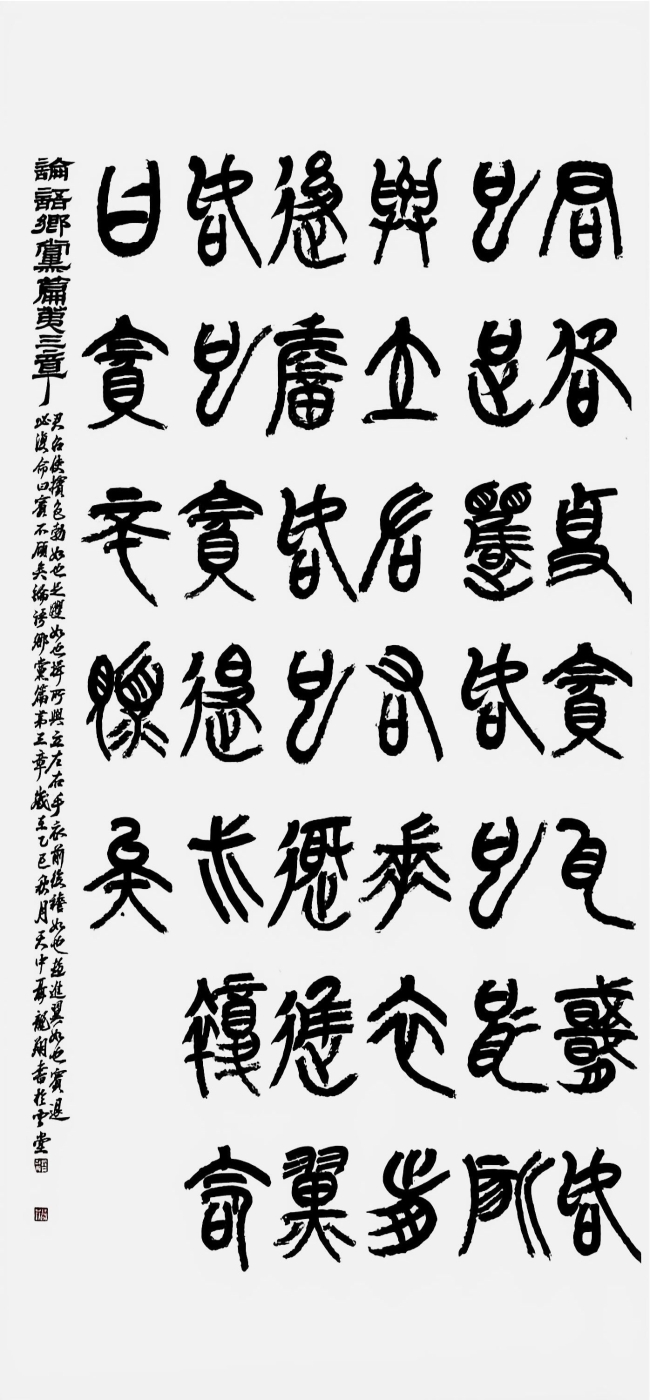 君召使賓色勃如
也足躩如也揖所
與立左右手衣前
後襜如也趨進翼
如也賓退必復命
曰賓不顧矣
論語鄉黨篇第三章
君召使擯色勃如也足躩如也揖所與立左右手衣前後襜如也趨進翼如也賓退
必復命曰賓不顧矣論語鄉黨篇第三章歲在乙巳秋月天中聶龍翔書於雲堂